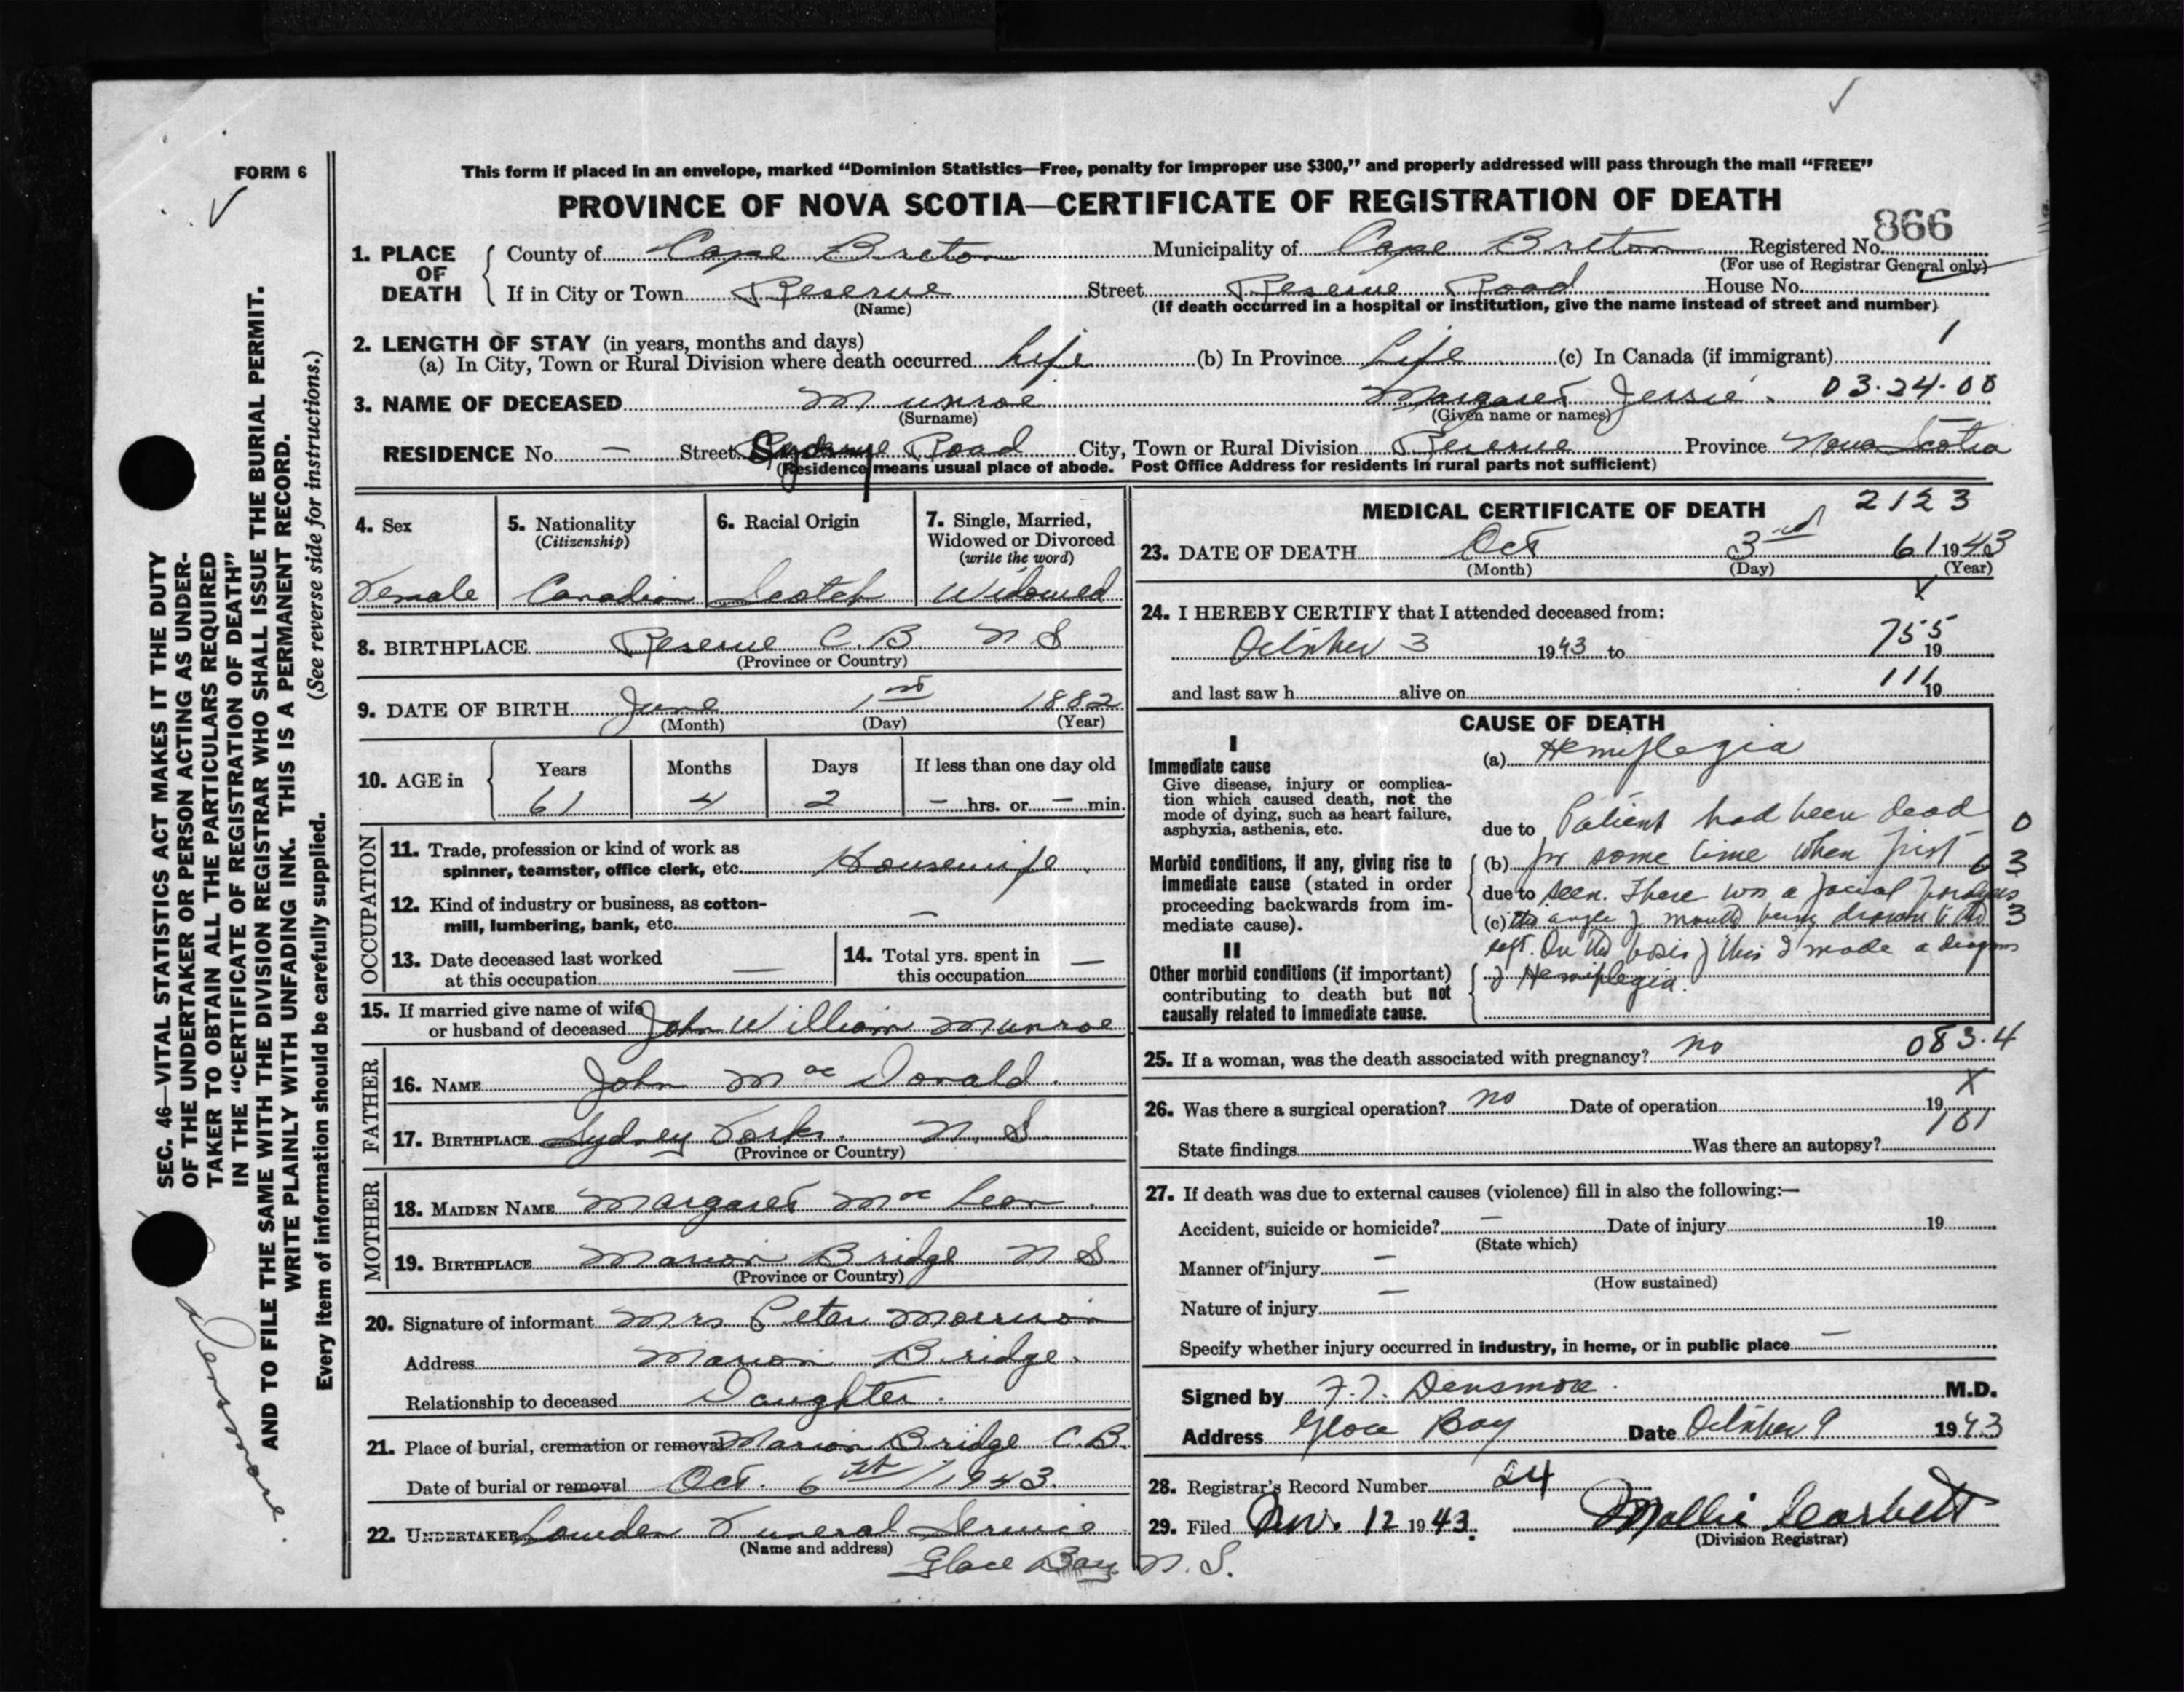 FORM 6
This form if placed in an envelope, marked “Dominion Statistics—Free, penalty for improper use $300,” and properly addressed will pass through the mail “FREE”
PROVINCE OF NOVA SCOTIA—CERTIFICATE OF REGISTRATION OF DEATH
866
1. PLACE OF DEATH County of Cape Breton Municipality of Cape Breton Registered No.
(For use of Registrar General only)
If in City or Town Reserve Street Reserve Road House No.
(Name) (If death occurred in a hospital or institution, give the name instead of street and number)
2. LENGTH OF STAY (in years, months and days) 1
(a) In City, Town or Rural Division where death occurred Life (b) In Province Life (c) In Canada (if immigrant)
3. NAME OF DECEASED Munroe Margaret Jessie. 03-24-00
(Surname) (Given name or names)
RESIDENCE No. — Street Sydney Road City, Town or Rural Division Reserve Province Nova Scotia
(Residence means usual place of abode. Post Office Address for residents in rural parts not sufficient)
4. Sex 5. Nationality 6. Racial Origin 7. Single, Married,
(Citizenship) Widowed or Divorced
(write the word)
Female Canadian Scotch Widowed
8. BIRTHPLACE Reserve C.B. N S
(Province or Country)
9. DATE OF BIRTH June 1st 1882
(Month) (Day) (Year)
10. AGE in Years Months Days If less than one day old
61 4 2 — hrs. or — min.
OCCUPATION
11. Trade, profession or kind of work as
spinner, teamster, office clerk, etc. Housewife
12. Kind of industry or business, as cotton-
mill, lumbering, bank, etc. —
13. Date deceased last worked 14. Total yrs. spent in
at this occupation — this occupation —
15. If married give name of wife
or husband of deceased John William Munroe
FATHER
16. NAME John Mac Donald.
17. BIRTHPLACE Sydney Forks. N. S.
(Province or Country)
MOTHER
18. MAIDEN NAME Margaret Mac Lean.
19. BIRTHPLACE Marion Bridge N S.
(Province or Country)
20. Signature of informant Mrs Peter Morrison
Address Marion Bridge.
Relationship to deceased Daughter.
21. Place of burial, cremation or removal Marion Bridge C.B.
Date of burial or removal Oct. 6th / 1943.
22. UNDERTAKER Lowden Funeral Service
(Name and address) Glace Bay N. S.
MEDICAL CERTIFICATE OF DEATH 2123
23. DATE OF DEATH Oct 3rd 61 1943
(Month) (Day) (Year)
X
24. I HEREBY CERTIFY that I attended deceased from:
October 3 1943 to 19
755
and last saw h alive on 19
111
CAUSE OF DEATH
I
Immediate cause
Give disease, injury or complica-
tion which caused death, not the
mode of dying, such as heart failure,
asphyxia, asthenia, etc.
Morbid conditions, if any, giving rise to
immediate cause (stated in order
proceeding backwards from im-
mediate cause).
II
Other morbid conditions (if important)
contributing to death but not
causally related to immediate cause.
(a) Hemiplegia
due to Patient had been dead 0
(b) for some time when first 03
due to seen. There was a facial paralysis
(c) the angle of mouth being drawn to the 3
left. On the basis of this I made a diagnosis
of Hemiplegia.
25. If a woman, was the death associated with pregnancy? no 083.4
X
26. Was there a surgical operation? no Date of operation 19
101
State findings Was there an autopsy?
27. If death was due to external causes (violence) fill in also the following:—
Accident, suicide or homicide? — Date of injury 19
(State which)
Manner of injury —
(How sustained)
Nature of injury —
Specify whether injury occurred in industry, in home, or in public place —
Signed by F.T. Densmore. M.D.
Address Glace Bay Date October 9 1943
28. Registrar's Record Number 24
29. Filed Nov. 12 1943. Mollie Corbett
(Division Registrar)
SEC. 46—VITAL STATISTICS ACT MAKES IT THE DUTY
OF THE UNDERTAKER OR PERSON ACTING AS UNDER-
TAKER TO OBTAIN ALL THE PARTICULARS REQUIRED
IN THE “CERTIFICATE OF REGISTRATION OF DEATH”
AND TO FILE THE SAME WITH THE DIVISION REGISTRAR WHO SHALL ISSUE THE BURIAL PERMIT.
WRITE PLAINLY WITH UNFADING INK. THIS IS A PERMANENT RECORD.
Every item of information should be carefully supplied. (See reverse side for instructions.)
Densmore.